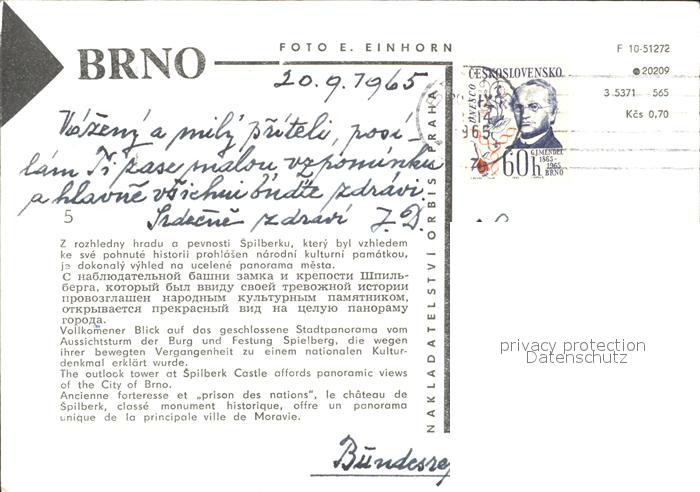 FOTO E. EINHORN
F 10-51272
BRNO
20.9.1965
ČESKOSLOVENSKO
20209
3 5371 565
Kčs 0,70
UNESCO
IX
14
965
60h
G.J.MENDEL
1865-
1965
BRNO
Vážený a milý příteli, posí-
lám Ti zase malou vzpomínku
a hlavně všichni buďte zdrávi
5
Srdečně zdraví J.D.
Z rozhledny hradu a pevnosti Špilberku, který byl vzhledem
ke své pohnuté historii prohlášen národní kulturní památkou,
je dokonalý výhled na ucelené panorama města.
С наблюдательной башни замка и крепости Шпиль-
берга, который был ввиду своей тревожной истории
провозглашен народным культурным памятником,
открывается прекрасный вид на целую панораму
города.
Vollkomener Blick auf das geschlossene Stadtpanorama vom
Aussichtsturm der Burg und Festung Spielberg, die wegen
ihrer bewegten Vergangenheit zu einem nationalen Kultur-
denkmal erklärt wurde.
The outlook tower at Špilberk Castle affords panoramic views
of the City of Brno.
Ancienne forteresse et „prison des nations", le château de
Špilberk, classé monument historique, offre un panorama
unique de la principale ville de Moravie.
NAKLADATELSTVÍ ORBIS PRAHA
privacy protection
Datenschutz
Bündesre